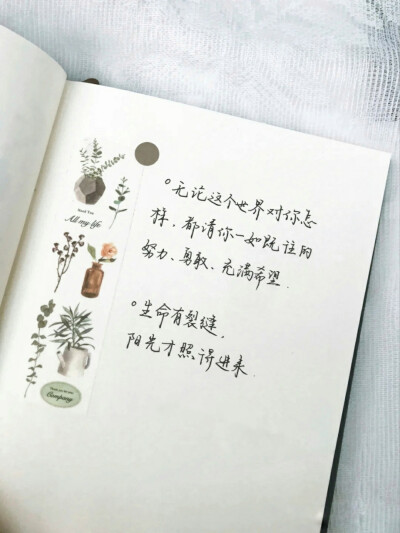 Need You
All my life
。无论这个世界对你怎
样，都请你一如既往的
努力、勇敢、充满希望.
。生命有裂缝，
阳光才照得进来
Company